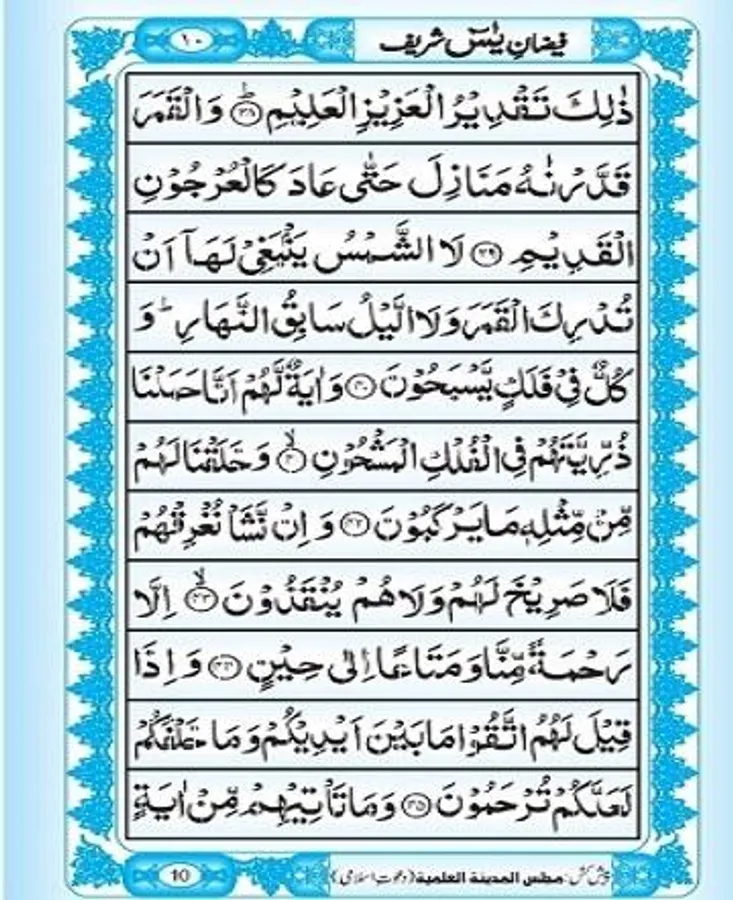 فیضانِ یٰسٓ شریف ۱۰
ذٰلِكَ تَقْدِیْرُ الْعَزِیْزِ الْعَلِیْمِؕ﴿۳۸﴾ وَ الْقَمَرَ
قَدَّرْنٰهُ مَنَازِلَ حَتّٰى عَادَ كَالْعُرْجُوْنِ
الْقَدِیْمِ ﴿۳۹﴾ لَا الشَّمْسُ یَنْۢبَغِیْ لَهَاۤ اَنْ
تُدْرِكَ الْقَمَرَ وَ لَا الَّیْلُ سَابِقُ النَّهَارِؕ وَ
كُلٌّ فِیْ فَلَكٍ یَّسْبَحُوْنَ ﴿۴۰﴾ وَ اٰیَةٌ لَّهُمْ اَنَّا حَمَلْنَا
ذُرِّیَّتَهُمْ فِی الْفُلْكِ الْمَشْحُوْنِۙ﴿۴۱﴾ وَ خَلَقْنَا لَهُمْ
مِّنْ مِّثْلِهٖ مَا یَرْكَبُوْنَ ﴿۴۲﴾ وَ اِنْ نَّشَاْ نُغْرِقْهُمْ
فَلَا صَرِیْخَ لَهُمْ وَ لَا هُمْ یُنْقَذُوْنَۙ﴿۴۳﴾ اِلَّا
رَحْمَةً مِّنَّا وَ مَتَاعًا اِلٰى حِیْنٍ ﴿۴۴﴾ وَ اِذَا
قِیْلَ لَهُمُ اتَّقُوْا مَا بَیْنَ اَیْدِیْكُمْ وَ مَا خَلْفَكُمْ
لَعَلَّكُمْ تُرْحَمُوْنَ ﴿۴۵﴾ وَ مَا تَاْتِیْهِمْ مِّنْ اٰیَةٍ
پیش کش: مجلس المدینة العلمیة (دعوتِ اسلامی) 10